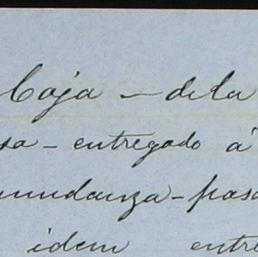 Caja - de la
sa - entregado á
mudanza - pasa
idem entre